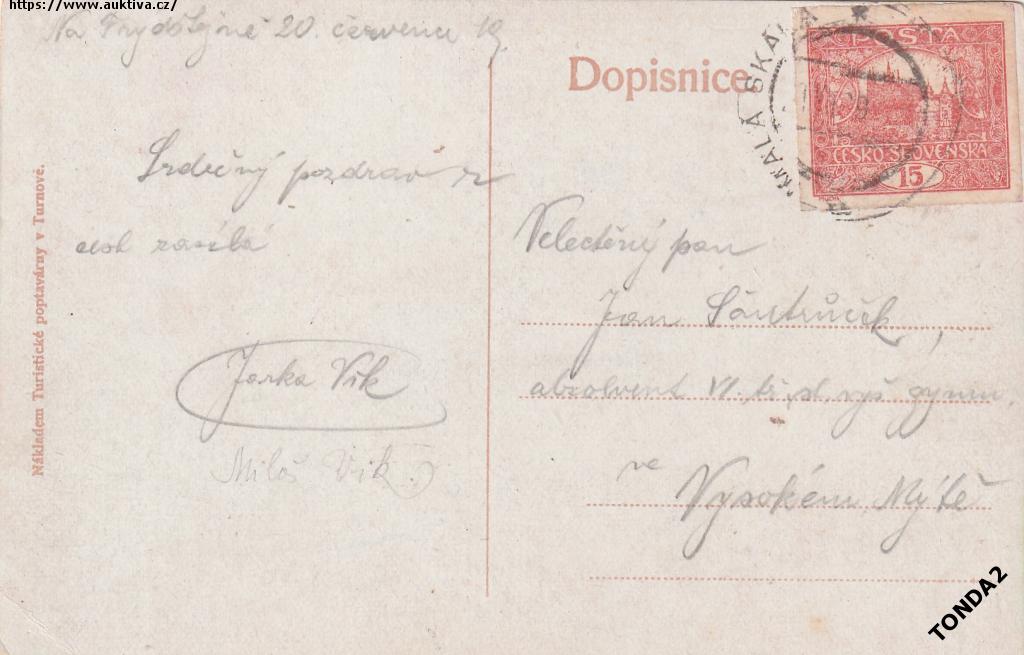 https://www.auktiva.cz/
Na Frýdštejně 20. července 19.
Srdečný pozdrav z
zasílá
Jarka Vik
Miloš Vik.
Nákladem Turistické poptavárny v Turnově.
Dopisnice
SKALA
POŠTA
ČESKO-SLOVENSKÁ
15
Velectěný pan
Jan Šantrůček,
absolvent VI. tř. vyš. gymn.
ve
Vysokém Mýtě
TONDA2